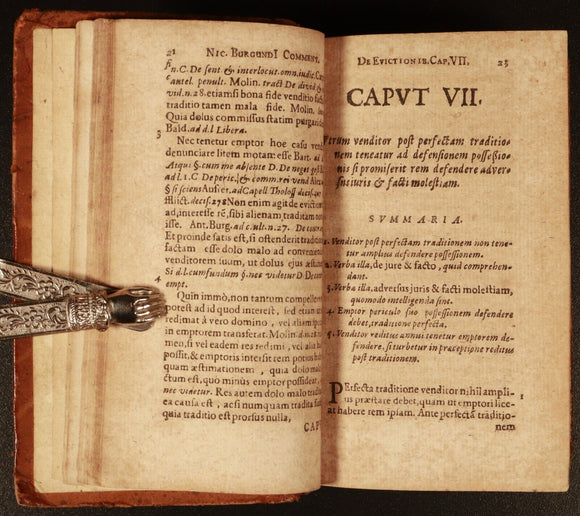 21 NIC. BURGUNDI COMMENT.
n. C. De sent & interlocut. omn. iudic.
autel. penult. Molin. tract De divid &
vid. n. 28. etiamsi bona fide venditio
traditio tamen mala fide. Molin.
Quia dolus commissus statim
Bald. ad d. l Libera.
3
Nec tenetur emptor hoc casu
denunciare litem motam esse Bart. ad l
Atqui §. cum me absẽte D. De negot
ad l. 1. C De peric. & comm. rei vend
§ si sciens Aufrer, ad Capell Tholos.
fflict. decis. 278 Non enim agit de
ad, interesse rẽ, sibi alienam, traditam
isse. Ant. Burg. ad c. ult. n. 27.
Et proinde satis est, si ostenderit
factam esse dolo malo ad
venditorem suum, ut dolus ejus
Si d. l. cum fundum §. nec videtur D. De
empt.
4
Quin immò, non tantum
potest ad id quod interest, sed etiam
redimat à vero domino, vel
in emptorem transferat. Molin.
mero, si vel eadem res redimi, vel
possit, & emptoris intersit rem
quam æstimationem, quia dolo
ctum est, quo minus emptor possideat,
nec videtur. Res autem dolo malo
ea causa est, acsi numquam tradita
quia traditio est prorsus nulla,
CAP
DE EVICTIONIB. CAP. VII. 23
CAPVT VII.
Vtrum venditor post perfectam traditio-
nem teneatur ad defensionem possessio-
nis si promiserit rem defendere adver-
sus iuris & facti molestiam.
SVMMARIA.
1. Venditor post perfectam traditionem non tene-
tur amplius defendere possessionem.
2. Verba illa, de jure & facto, quid comprehen-
dant.
3. Verba illa, adversus juris & facti molestiam,
quomodo intelligenda sint.
4. Emptor periculo suo possessionem defendere
debet, traditione perfecta.
5. Venditor reditus annui tenetur emptorem de-
fendere, si turbetur in præceptione reditus
post traditionem.
PErfecta traditione venditor nihil ampli- 1
us præstare debet, quam ut emptori lice-
at habere rem ipsam. Ante perfectã traditio-
nem